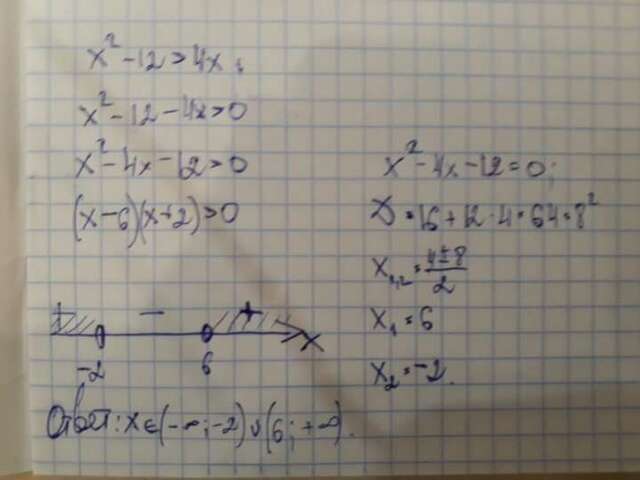 x² - 12 > 4x;
x² - 12 - 4x > 0
x² - 4x - 12 > 0
(x - 6)(x + 2) > 0
x² - 4x - 12 = 0;
D = 16 + 12 · 4 = 64 = 8²
x₁,₂ = (4 ± 8)/2
x₁ = 6
x₂ = -2.
+ − +
-2 6 x
Ответ: x ∈ (-∞; -2) ∪ (6; +∞).